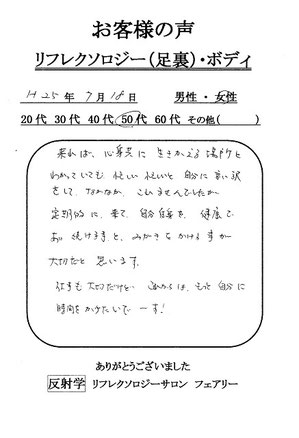 お客様の声
リフレクソロジー(足裏)・ボディ
H25年 7月18日 男性 ・ 女性
20代 30代 40代 50代 60代 その他( )
来れば、心身共に 生きかえる 場所と
わかっていても 忙しい 忙しいと 自分に 言い訳
をして なかなか こしませんでしたが
定期的に 来て 自分自身を、健康で
お 続けますと、みがきをかける事が
大切だと 思います。
仕事も 大切だけど これからは、もっと 自分に
時間を かけたいで〜す!
ありがとうございました
反射学 リフレクソロジーサロン フェアリー